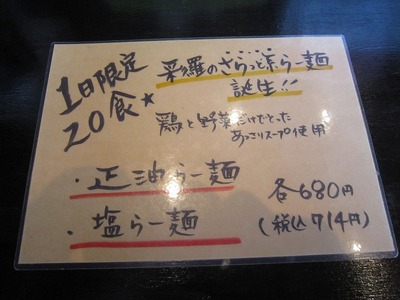 1日限定
20食★
彩羅のさらっと系らー麺
誕生!!
鶏と野菜だけでとった
あっさりスープ使用
・正油らー麺
・塩らー麺
各680円
(税込714円)